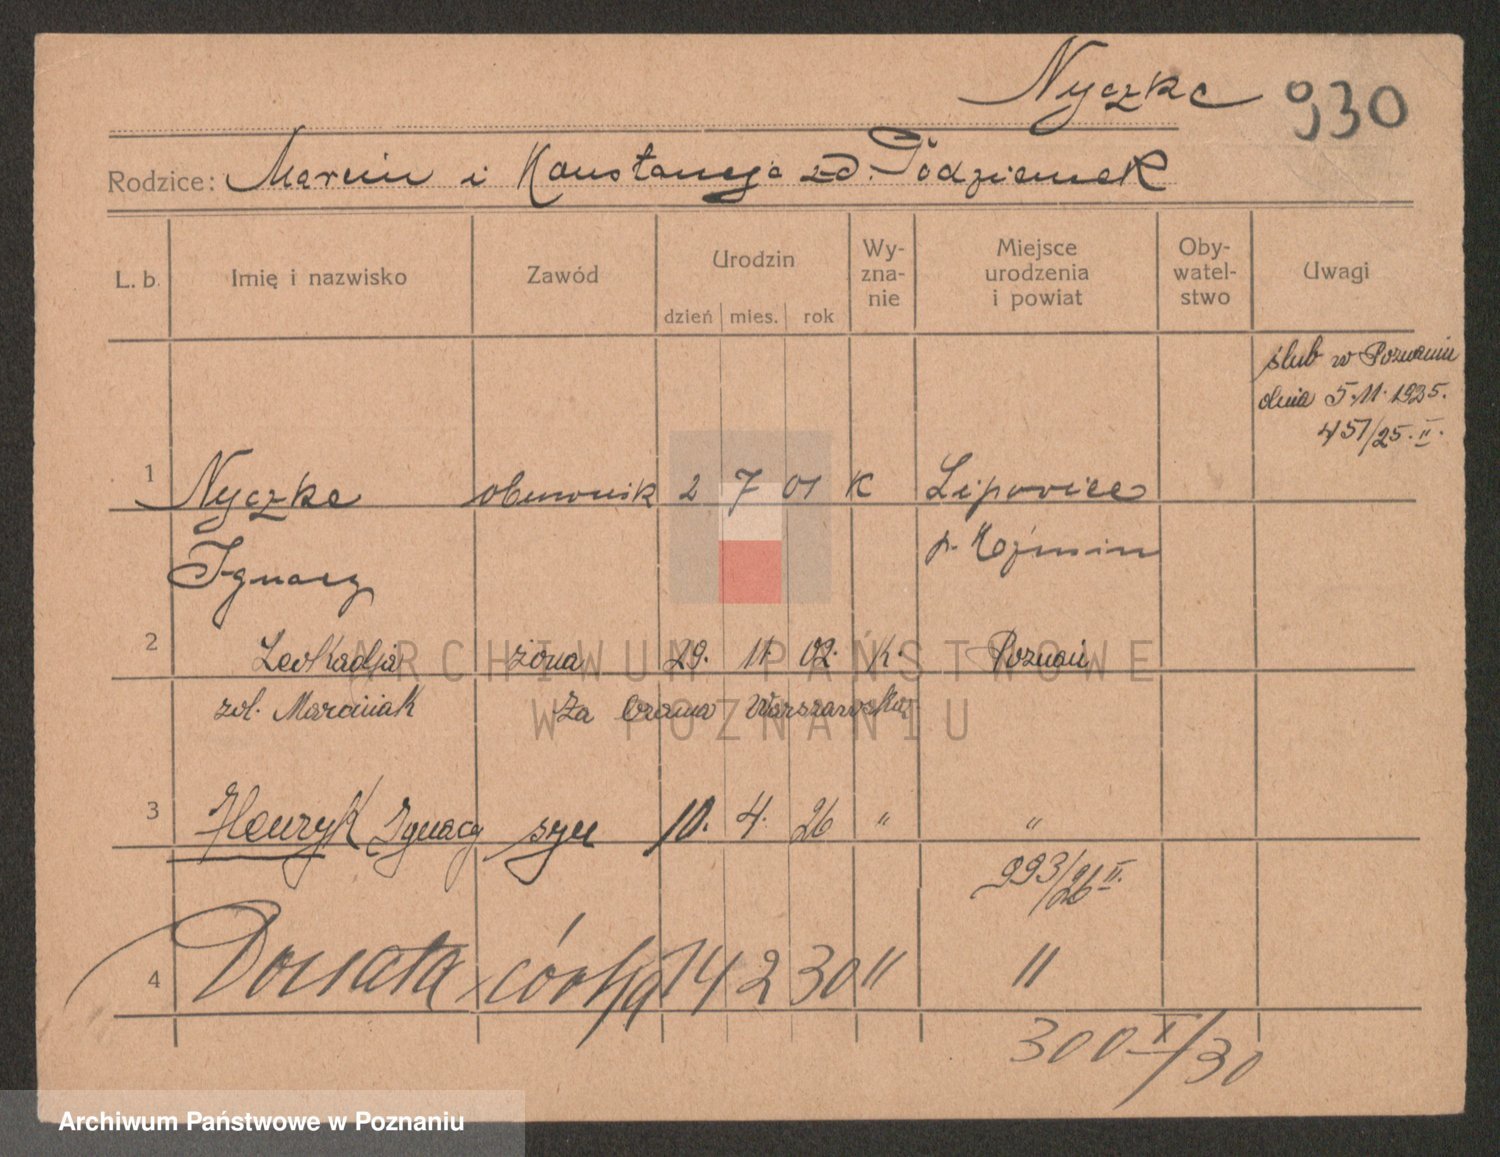 Nyczke 930
Rodzice: Marcin i Konstancja zd. Podziemek
L. b. Imię i nazwisko Zawód Urodzin dzień mies. rok Wy-zna-nie Miejsce urodzenia i powiat Oby-watel-stwo Uwagi
ślub w Poznaniu
dnia 5.11.1925.
457/25. II.
1 Nyczke obuwnik 2 7 01 K Lipowiec
Ignacy p. Koźmin
2 Leokadja żona 29. 11 02. K. Poznań
zd. Marciniak Za Bramą Warszawską
3 Henryk Ignacy syn 10. 4. 26 " "
993/26 II.
4 Donata córka 14 2 30 " "
300 X/30
ARCHIWUM PAŃSTWOWE
W POZNANIU
Archiwum Państwowe w Poznaniu